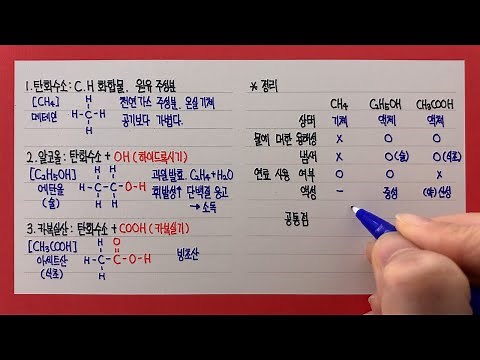 1. 탄화수소: C.H 화합물. 원유 주성분
[CH4]
메테인
H
H-C-H
H
천연가스 주성분. 온실기체
공기보다 가볍다.
2. 알코올: 탄화수소 + OH (하이드록시기)
[C2H5OH]
에탄올
(술)
H H
H-C-C-O-H
H H
과일발효. C2H4+H2O
휘발성↑ 단백질 응고
→ 소독
3. 카복실산: 탄화수소 + COOH (카복실기)
[CH3COOH]
아세트산
(식초)
H O
H-C-C-O-H
H
빙초산
* 정리
CH4 C2H5OH CH3COOH
상태 기체 액체 액체
물에 대한 용해성 X O O
냄새 X O(술) O(식초)
연료 사용 여부 O O X
액성 - 중성 (약)산성
공통점